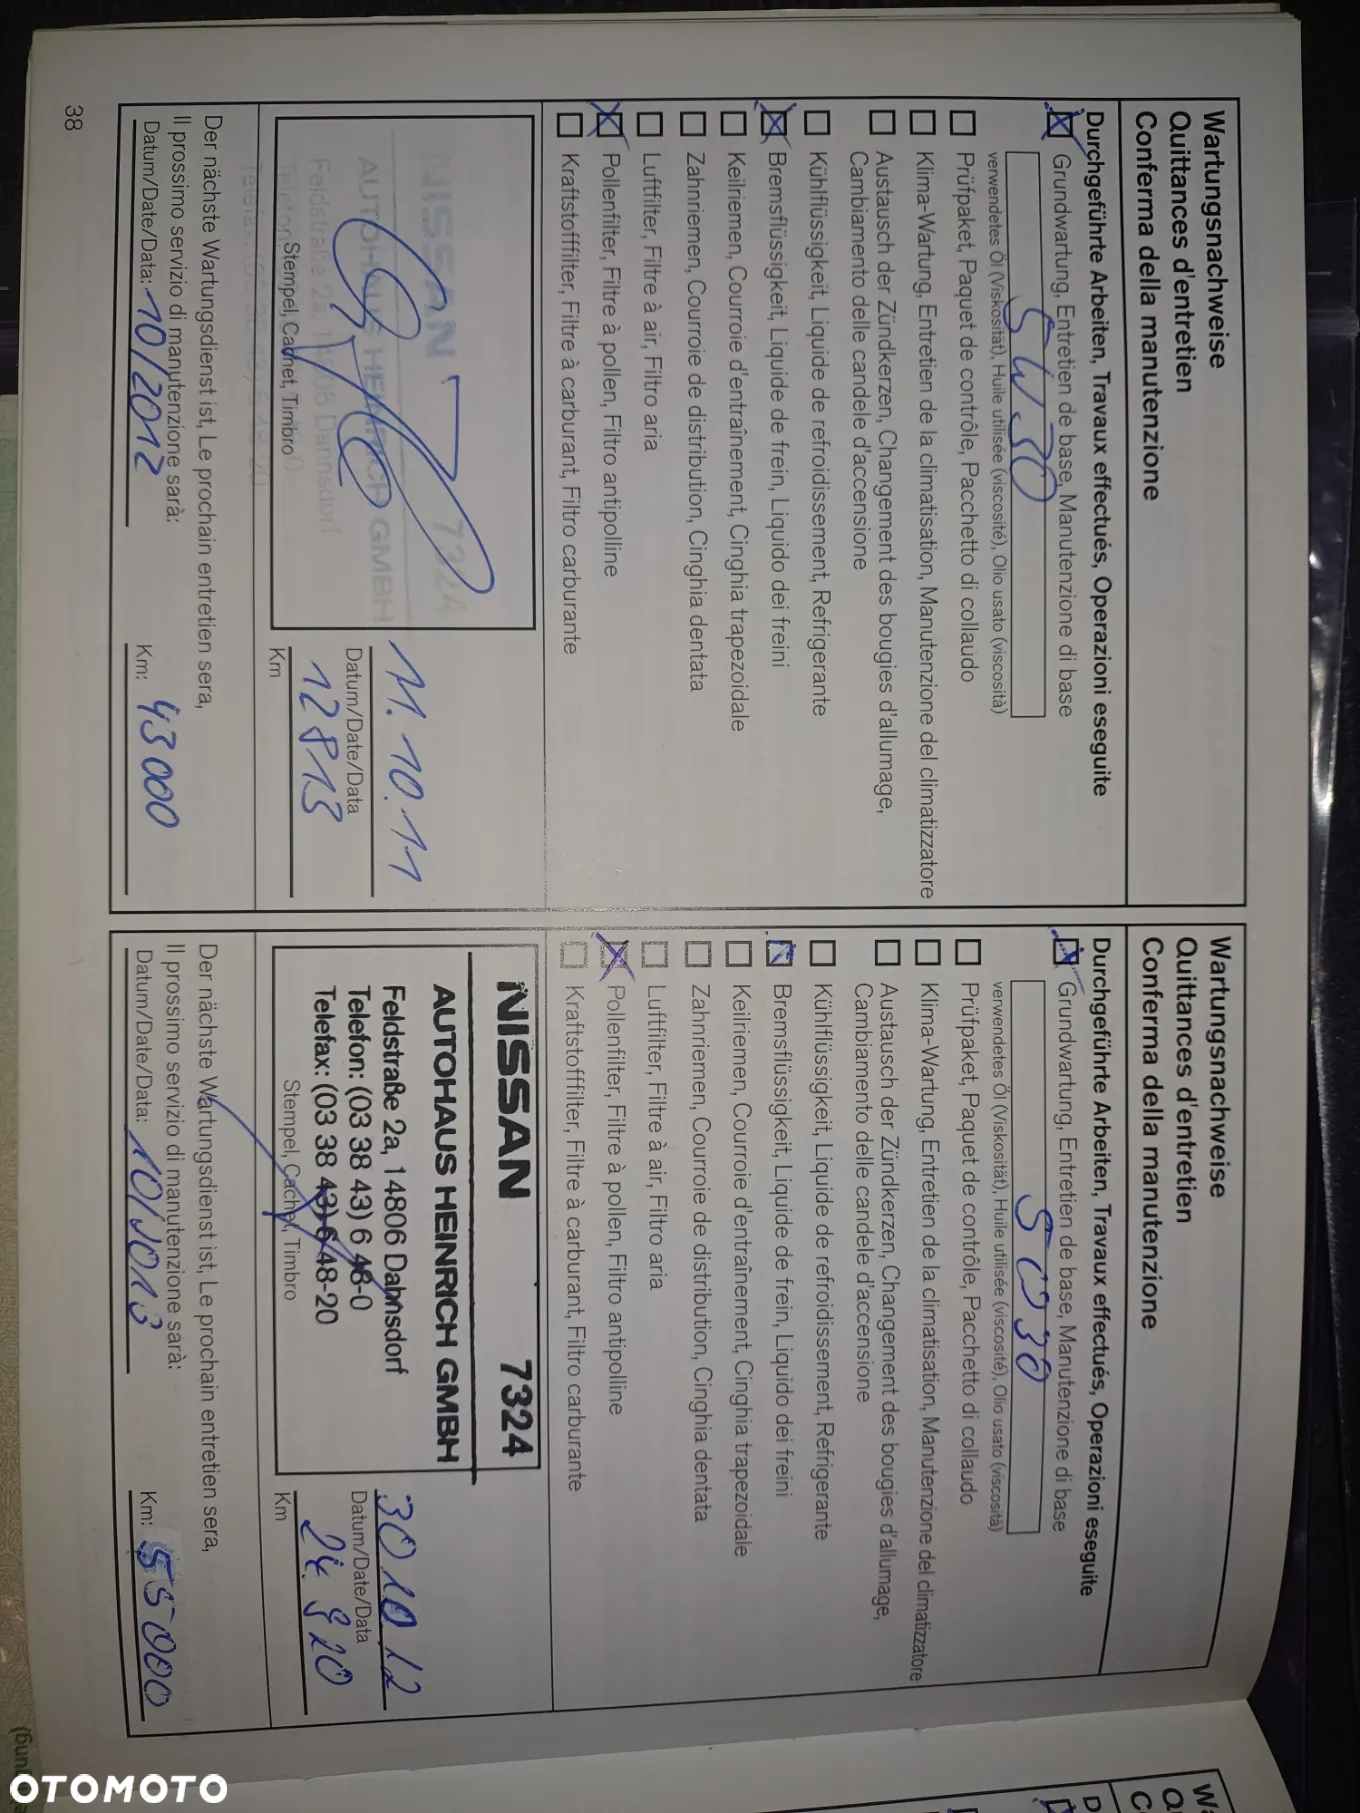 Wartungsnachweise
Quittances d'entretien
Conferma della manutenzione
Durchgeführte Arbeiten, Travaux effectués, Operazioni eseguite
Grundwartung, Entretien de base, Manutenzione di base
5W30
verwendetes Öl (Viskosität), Huile utilisée (viscosité), Olio usato (viscosità)
Prüfpaket, Paquet de contrôle, Pacchetto di collaudo
Klima-Wartung, Entretien de la climatisation, Manutenzione del climatizzatore
Austausch der Zündkerzen, Changement des bougies d'allumage,
Cambiamento delle candele d'accensione
Kühlflüssigkeit, Liquide de refroidissement, Refrigerante
Bremsflüssigkeit, Liquide de frein, Liquido dei freini
Keilriemen, Courroie d'entraînement, Cinghia trapezoidale
Zahnriemen, Courroie de distribution, Cinghia dentata
Luftfilter, Filtre à air, Filtro aria
Pollenfilter, Filtre à pollen, Filtro antipolline
Kraftstofffilter, Filtre à carburant, Filtro carburante
NISSAN 7324
AUTOHAUS HEINRICH GMBH
Feldstraße 2a, 14806 Dahnsdorf
Stempel, Cachet, Timbro
11.10.11
Datum/Date/Data
12813
Km
Der nächste Wartungsdienst ist, Le prochain entretien sera,
Il prossimo servizio di manutenzione sarà:
Datum/Date/Data: 10/2012
Km: 43000
38
Wartungsnachweise
Quittances d'entretien
Conferma della manutenzione
Durchgeführte Arbeiten, Travaux effectués, Operazioni eseguite
Grundwartung, Entretien de base, Manutenzione di base
5W30
verwendetes Öl (Viskosität), Huile utilisée (viscosité), Olio usato (viscosità)
Prüfpaket, Paquet de contrôle, Pacchetto di collaudo
Klima-Wartung, Entretien de la climatisation, Manutenzione del climatizzatore
Austausch der Zündkerzen, Changement des bougies d'allumage,
Cambiamento delle candele d'accensione
Kühlflüssigkeit, Liquide de refroidissement, Refrigerante
Bremsflüssigkeit, Liquide de frein, Liquido dei freini
Keilriemen, Courroie d'entraînement, Cinghia trapezoidale
Zahnriemen, Courroie de distribution, Cinghia dentata
Luftfilter, Filtre à air, Filtro aria
Pollenfilter, Filtre à pollen, Filtro antipolline
Kraftstofffilter, Filtre à carburant, Filtro carburante
NISSAN 7324
AUTOHAUS HEINRICH GMBH
Feldstraße 2a, 14806 Dahnsdorf
Telefon: (03 38 43) 6 48-0
Telefax: (03 38 43) 6 48-20
Stempel, Cachet, Timbro
30.10.12
Datum/Date/Data
24.920
Km
Der nächste Wartungsdienst ist, Le prochain entretien sera,
Il prossimo servizio di manutenzione sarà:
Datum/Date/Data: 10/2013
Km: 55000
OTOMOTO